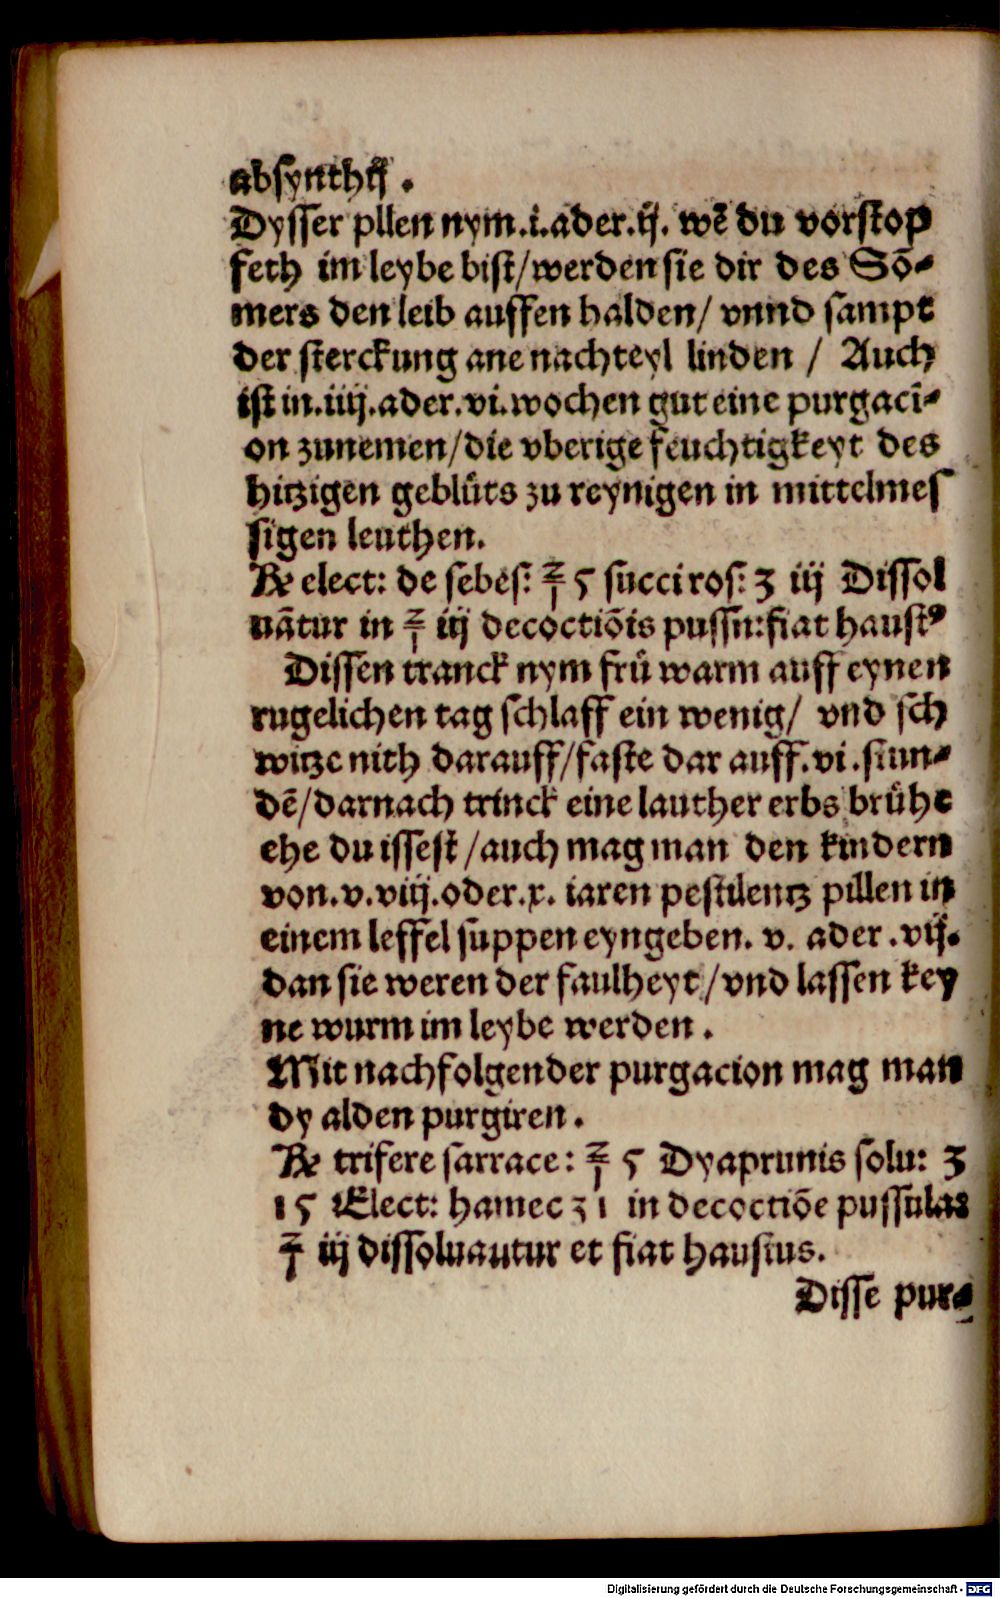 absynthij .
Dysser pllen nym.i.ader.ij. wē du vorstop
feth im leybe bist/werden sie dir des Sō⸗
mers den leib auffen halden/ vnnd sampt
der sterckung ane nachteyl linden / Auch
ist in.iiij.ader.vi.wochen gut eine purgaci⸗
on zunemen/die vberige feuchtigkeyt des
hitzigen geblüts zu reynigen in mittelmes
sigen leuthen.
℞ elect: de sebes: ℥ 5 succi ros: ʒ iij Dissol
uātur in ℥ iij decoctiōis pussu:fiat haustꝰ
Dissen tranck nym frü warm auff eynen
rugelichen tag schlaff ein wenig/ vnd sch
witze nith darauff/faste dar auff.vi.stun⸗
dē/darnach trinck eine lauther erbs brühe
ehe du issest /auch mag man den kindern
von.v.viij.oder.x. iaren pestilentz pillen in
einem leffel suppen eyngeben. v. ader .vij.
dan sie weren der faulheyt/vnd lassen key
ne wurm im leybe werden .
Mit nachfolgender purgacion mag man
dy alden purgiren .
℞ trifere sarrace: ℥ 5 Dyaprunis solu: ʒ
15 Elect: hamec ʒ 1 in decoctiōe pussulas
℥ iij dissoluautur et fiat haustus.
Disse pur⸗
Digitalisierung gefördert durch die Deutsche Forschungsgemeinschaft - DFG